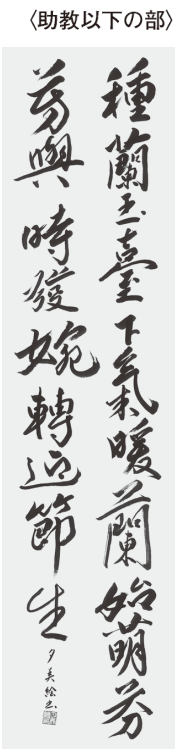 〈助教以下の部〉
種蘭玉臺下氣暖蘭始萌芬
芳與時發婉轉迎節生